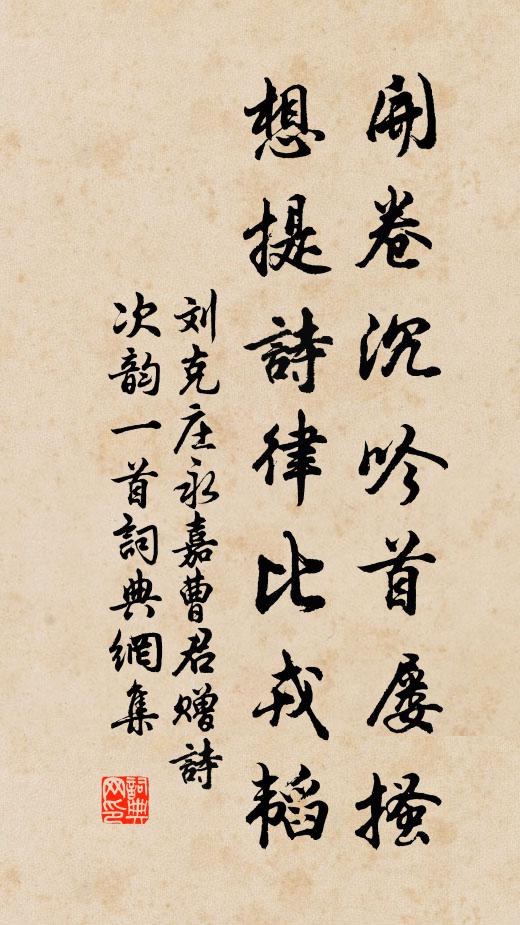 開卷沉吟首屢搔
想提詩律比戎韬
刘克庄永嘉曹君赠詩
次韵一首詞典網集
詞典网印